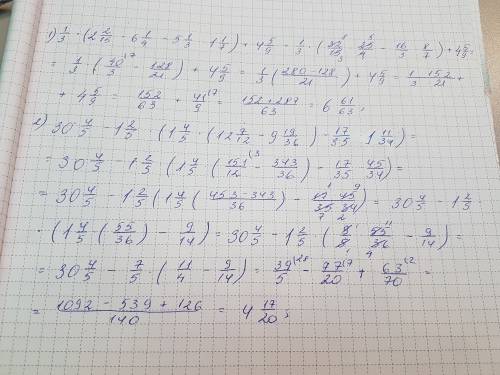 1) 1/3 · (2 2/15 · 6 1/4 - 5 1/3 · 1 1/7) + 4 5/9 = 1/3 · (32/15 · 25/4 - 16/3 · 8/7) + 4 5/9 =
= 1/3 · (40/3 - 128/21) + 4 5/9 = 1/3 (280 - 128/21) + 4 5/9 = 1/3 · 152/21 +
+ 4 5/9 = 152/63 + 41/9 = 152 + 287/63 = 6 61/63;
2) 30 4/5 - 1 2/5 · (1 4/5 · (12 7/12 - 9 19/36) - 17/35 · 1 11/34) =
= 30 4/5 - 1 2/5 (1 4/5 (151/12 - 343/36) - 17/35 · 45/34) =
= 30 4/5 - 1 2/5 (1 4/5 (453 - 343/36) - 17/35 · 45/34) = 30 4/5 - 1 2/5 ·
· (1 4/5 · (55/36) - 9/14) = 30 4/5 - 1 2/5 · (9/5 · 55/36 - 9/14) =
= 30 4/5 - 7/5 · (11/4 - 9/14) = 39/5 - 77/20 + 63/70 =
= 1092 - 539 + 126/140 = 4 17/20;